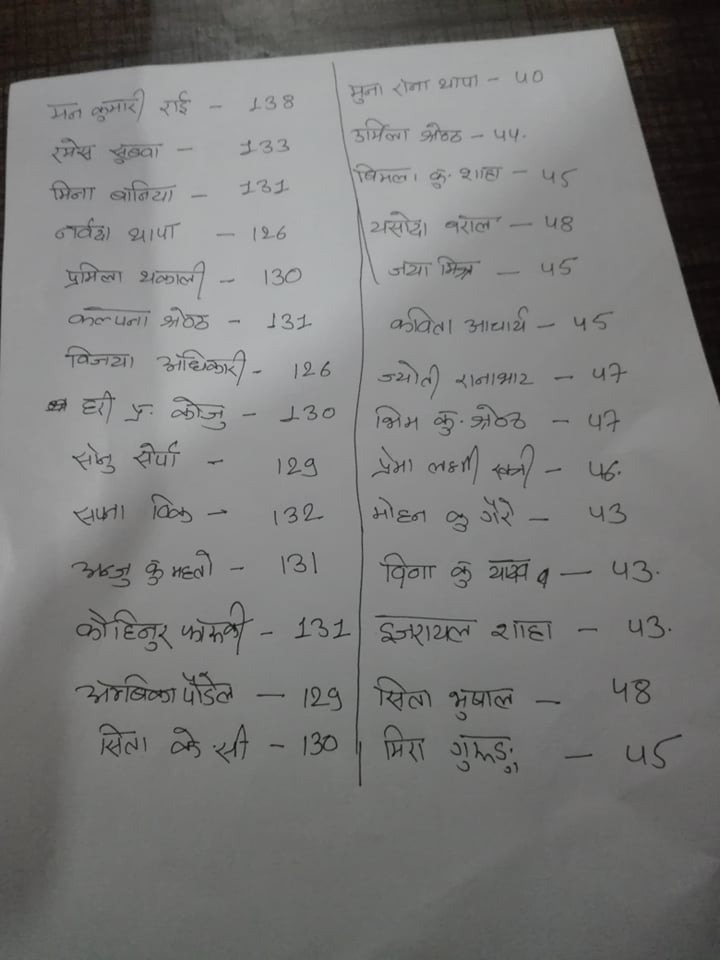 मन कुमारी राई - 138
रमेस सुब्वा - 133
मिना बानिया - 131
नर्वदा थापा - 126
प्रमिला थकाली - 130
कल्पना श्रेष्ठ - 131
विजया अधिकारी - 126
हरी प्र. कोजु - 130
सोनु सेर्पा - 129
सपना विक - 132
अन्जु कु महतो - 131
कोहिनुर फारुकी - 131
अम्बिका पौडेल - 129
सिता के.सी - 130
मुना राना थापा - 40
उर्मिला श्रेष्ठ - 44.
बिमला कु. शाहा - 45
यसोदा बराल - 48
जया मिश्र - 45
कविता आचार्य - 45
ज्योती रानाभाट - 47
भिम कु. श्रेष्ठ - 47
प्रेमा लक्ष्मी - 46.
मोहन कु गैरे - 43
विना कु - 43.
इजरायल शाहा - 43.
सिता भुषाल - 48
मिरा गुरुङ - 45